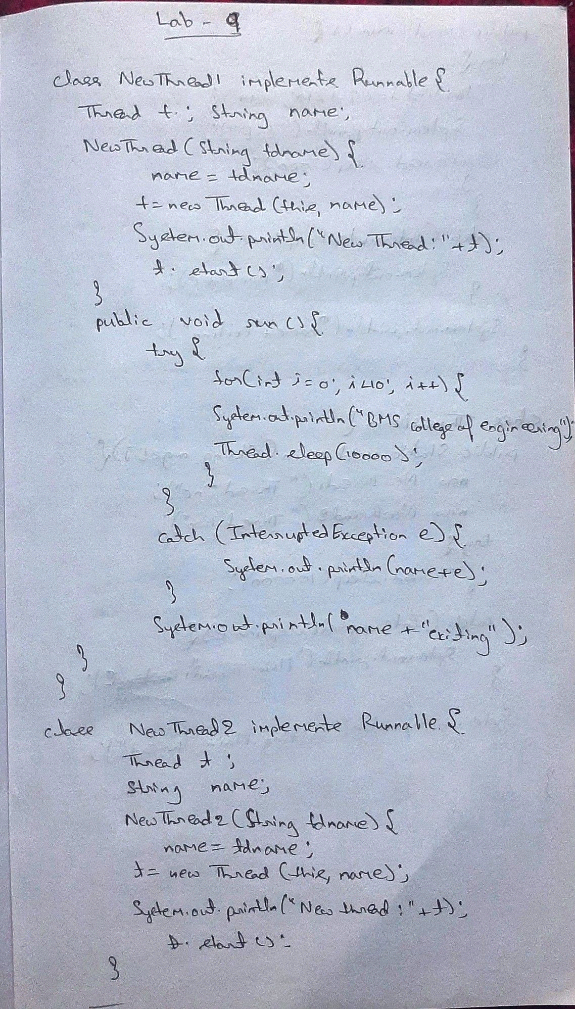 Lab - 9
class NewThread1 implements Runnable {
Thread t; String name;
NewThread (String tdname) {
name = tdname;
t = new Thread (this, name);
System.out.println("New Thread:"+t);
t. start ();
}
public void run () {
try {
for(int i=0; i<10; i++) {
System.out.println("BMS college of engineering");
Thread. sleep(10000);
}
}
catch (InterruptedException e) {
System.out.println(name+e);
}
System.out.println(name + "exiting");
}
}
class NewThread2 implements Runnable {
Thread t;
String name;
NewThread2 (String tdname) {
name = tdname;
t = new Thread (this, name);
System.out.println("New thread:"+t);
t. start ();
}